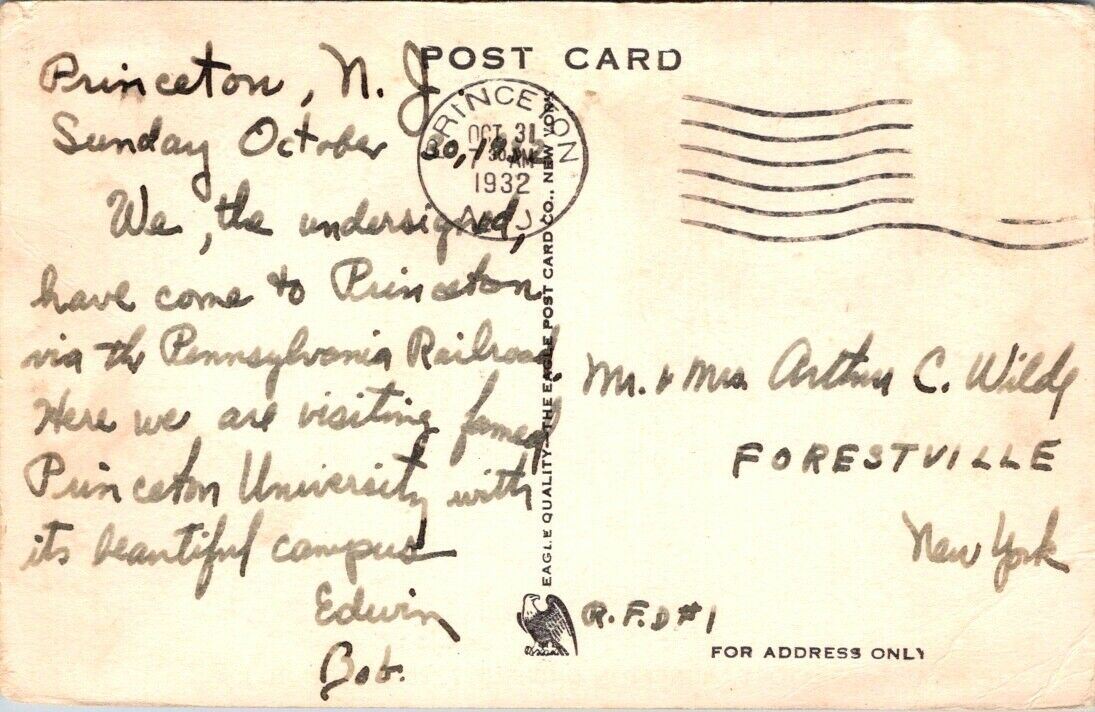 POST CARD
Princeton, N. J.
Sunday October 30, 1932
We, the undersigned,
have come to Princeton
via the Pennsylvania Railroad.
Here we are visiting famed
Princeton University with
its beautiful campus
Edwin
Bob.
PRINCETON
OCT 31
7 30 AM
1932
N.J.
EAGLE QUALITY—THE EAGLE POST CARD CO., NEW YORK
Mr. & Mrs. Arthur C. Wilde
FORESTVILLE
New York
R.F.D #1
FOR ADDRESS ONLY